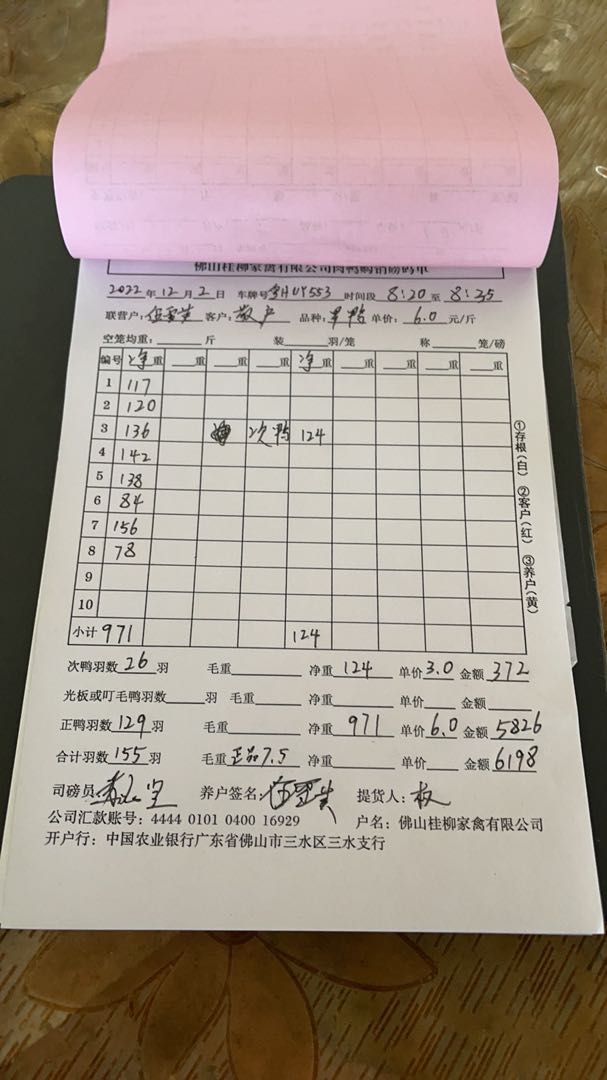 佛山桂柳家禽有限公司肉鸭购销磅码单
2022年12月2日 车牌号 粤HUY553 时间段 8:20至8:35
联营户: 客户: 散户 品种: 旱鸭 单价: 6.0 元/斤
空笼均重: 斤 装 羽/笼 称 笼/磅
编号 净重 重 重 重 净重 重 重 重 重
1 117
2 120
3 136 次鸭 124
4 142
5 138
6 84
7 156
8 78
9
10
小计 971 124
①存根(白) ②客户(红) ③养户(黄)
次鸭羽数 26 羽 毛重 净重 124 单价 3.0 金额 372
光板或叮毛鸭羽数 羽 毛重 净重 单价 金额
正鸭羽数 129 羽 毛重 净重 971 单价 6.0 金额 5826
合计羽数 155 羽 毛重 正品7.5 净重 单价 金额 6198
司磅员: 养户签名: 提货人: 权
公司汇款账号: 4444 0101 0400 16929 户名: 佛山桂柳家禽有限公司
开户行: 中国农业银行广东省佛山市三水区三水支行